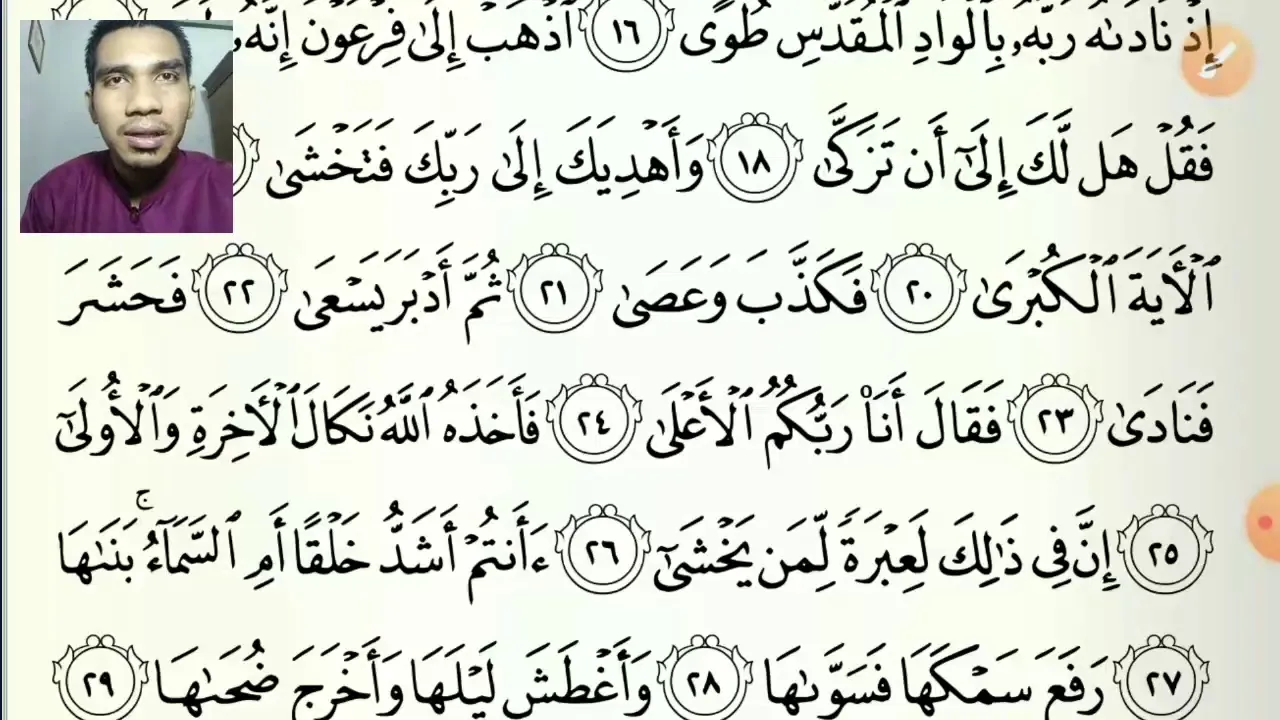 إِذْ نَادَىٰهُ رَبُّهُۥ بِٱلْوَادِ ٱلْمُقَدَّسِ طُوًى ١٦ ٱذْهَبْ إِلَىٰ فِرْعَوْنَ إِنَّهُۥ
فَقُلْ هَل لَّكَ إِلَىٰٓ أَن تَزَكَّىٰ ١٨ وَأَهْدِيَكَ إِلَىٰ رَبِّكَ فَتَخْشَىٰ
ٱلْأَيَةَ ٱلْكُبْرَىٰ ٢٠ فَكَذَّبَ وَعَصَىٰ ٢١ ثُمَّ أَدْبَرَ يَسْعَىٰ ٢٢ فَحَشَرَ
فَنَادَىٰ ٢٣ فَقَالَ أَنَا۠ رَبُّكُمُ ٱلْأَعْلَىٰ ٢٤ فَأَخَذَهُ ٱللَّهُ نَكَالَ ٱلْأَخِرَةِ وَٱلْأُولَىٰٓ
٢٥ إِنَّ فِى ذَٰلِكَ لَعِبْرَةً لِّمَن يَخْشَىٰٓ ٢٦ ءَأَنتُمْ أَشَدُّ خَلْقًا أَمِ ٱلسَّمَآءُ ۚ بَنَىٰهَا
٢٧ رَفَعَ سَمْكَهَا فَسَوَّىٰهَا ٢٨ وَأَغْطَشَ لَيْلَهَا وَأَخْرَجَ ضُحَىٰهَا ٢٩